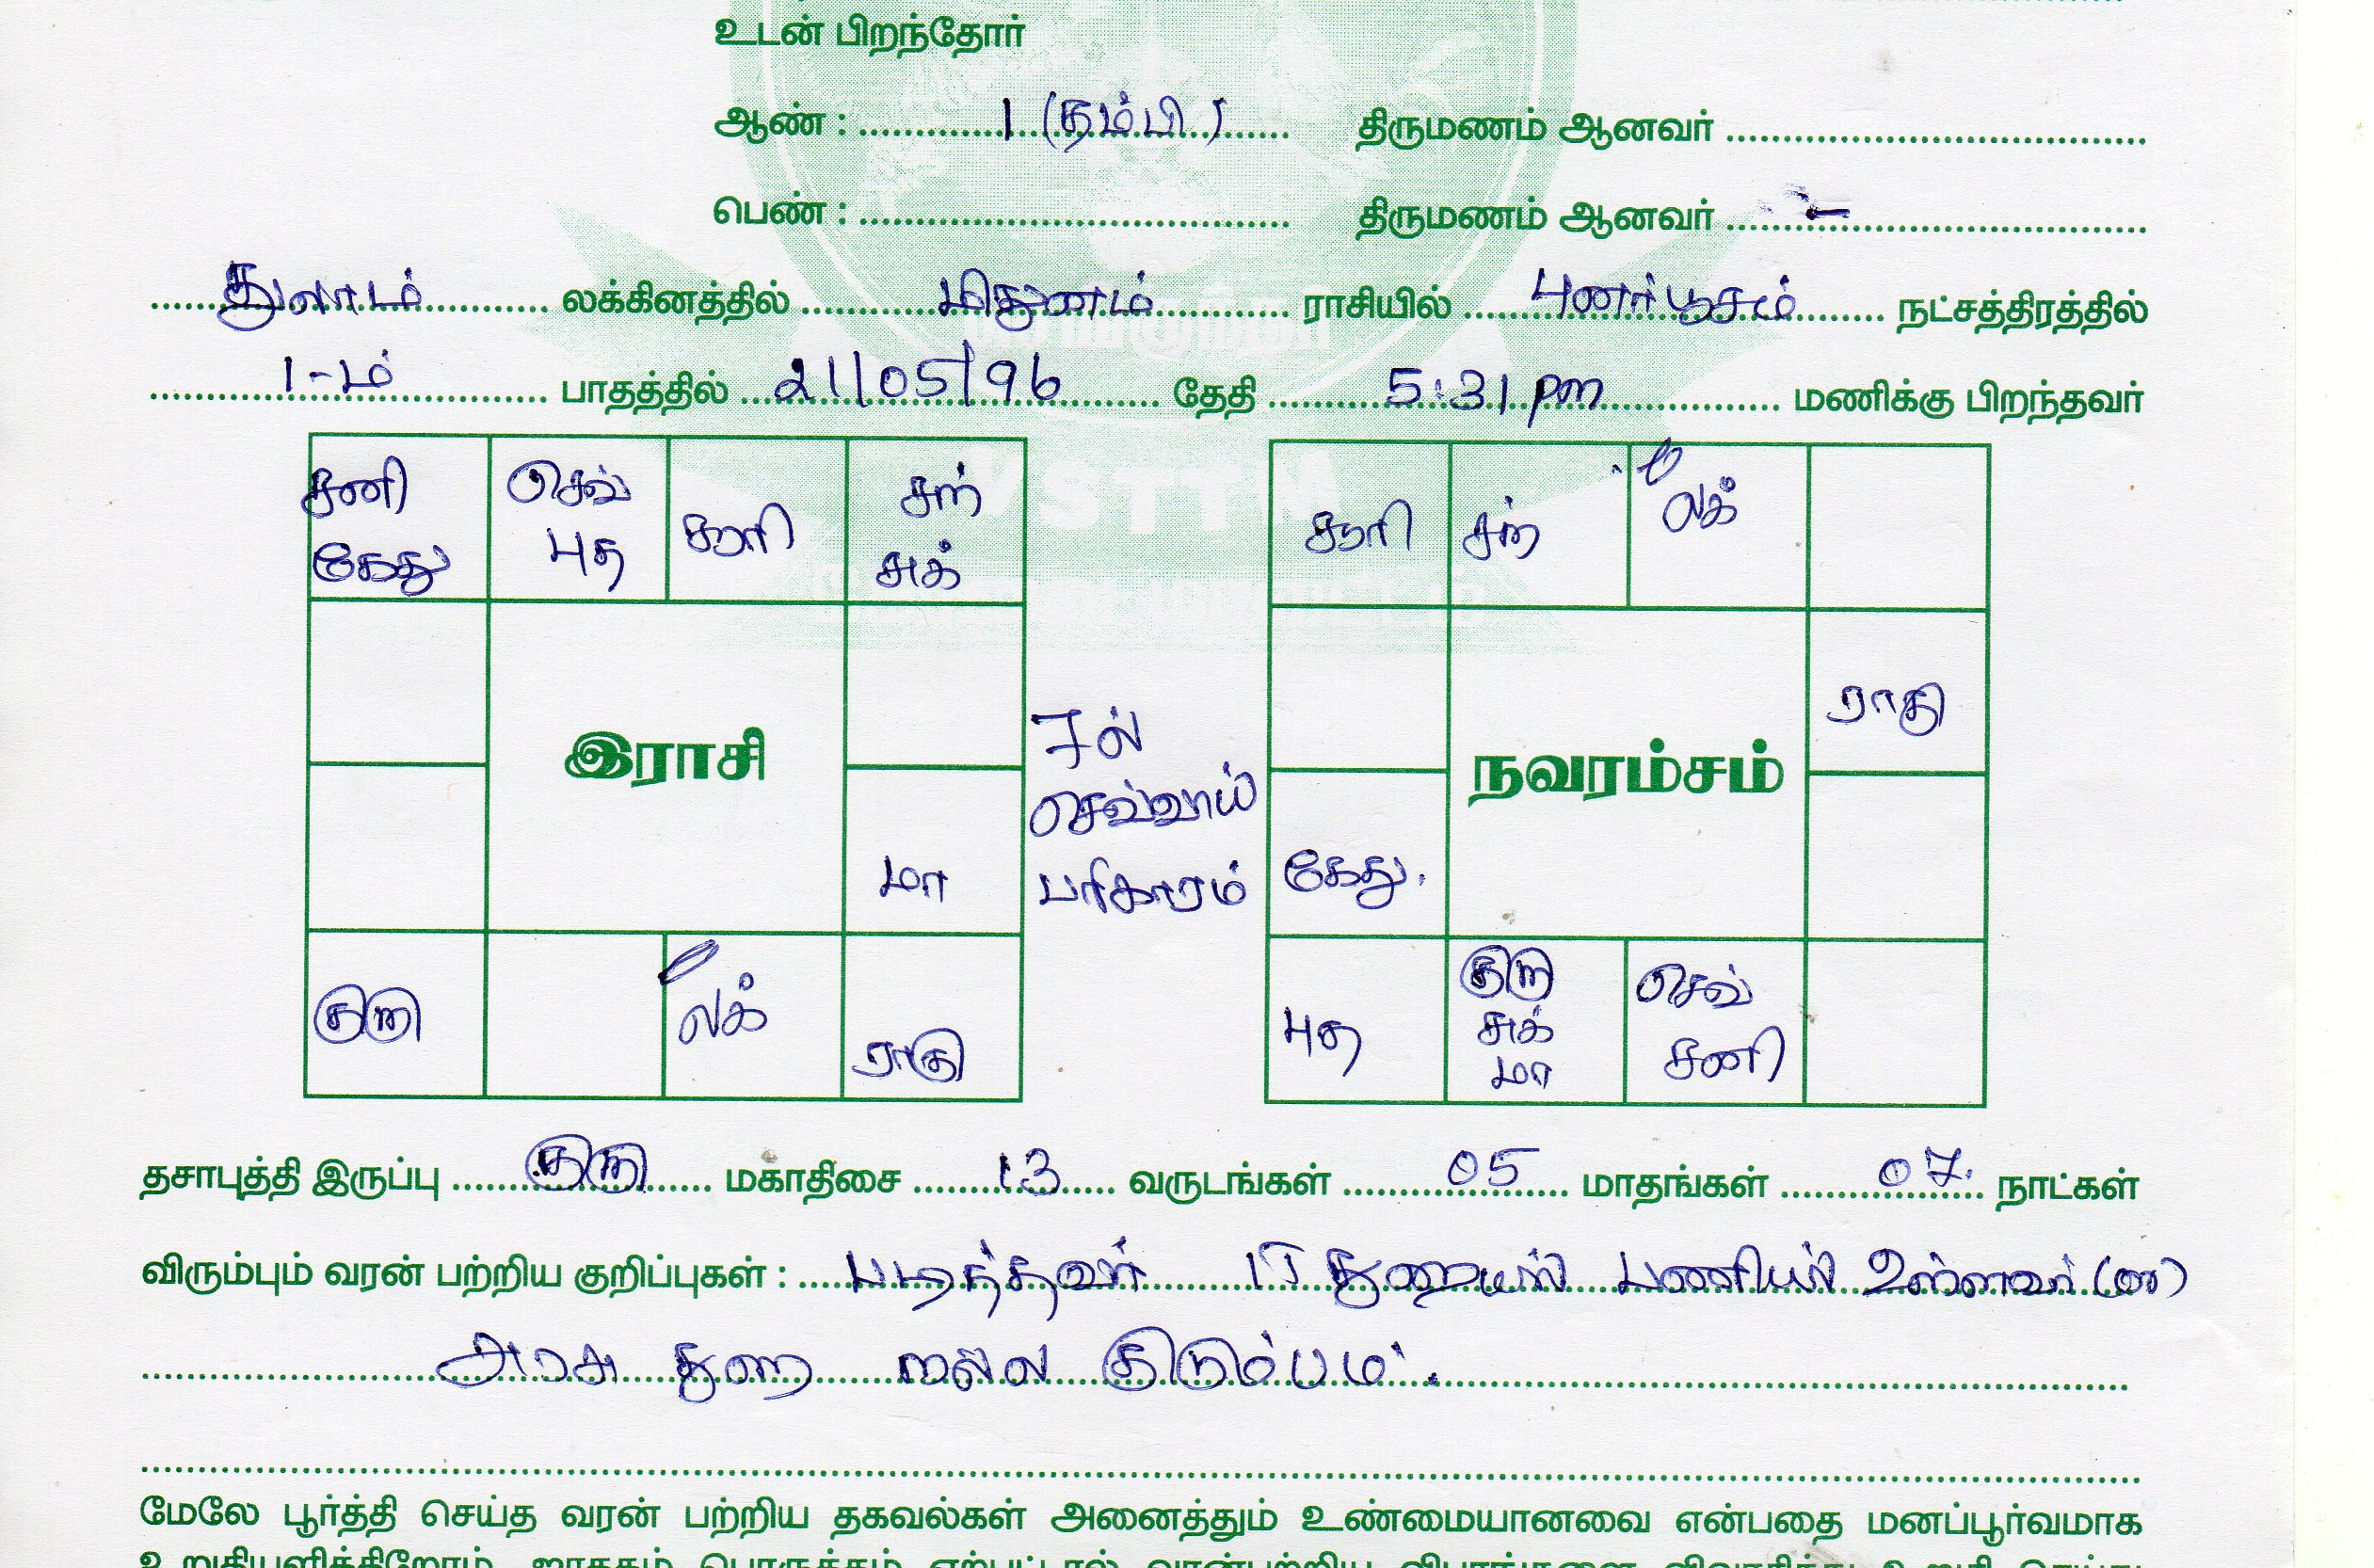 உடன் பிறந்தோர்
ஆண் : 1 (தம்பி) திருமணம் ஆனவர்
பெண் : திருமணம் ஆனவர் -
துலாம் லக்கினத்தில் மிதுனம் ராசியில் புனர்பூசம் நட்சத்திரத்தில்
1-ம் பாதத்தில் 21/05/96 தேதி 5:31 pm மணிக்கு பிறந்தவர்
சனி கேது செவ் புத சூரி சந் சுக்
சூரி சந் லக்
இராசி
நவரம்சம்
ராகு
7ல்
செவ்வாய்
பரிகாரம்
மா
கேது.
குரு லக் ராகு
புத குரு சுக் மா செவ் சனி
தசாபுத்தி இருப்பு குரு மகாதிசை 13 வருடங்கள் 05 மாதங்கள் 07 நாட்கள்
விரும்பும் வரன் பற்றிய குறிப்புகள் : படித்தவர் IT துறையில் பணியில் உள்ளவர் (அ)
அரசு துறை நல்ல குடும்பம்.
மேலே பூர்த்தி செய்த வரன் பற்றிய தகவல்கள் அனைத்தும் உண்மையானவை என்பதை மனப்பூர்வமாக